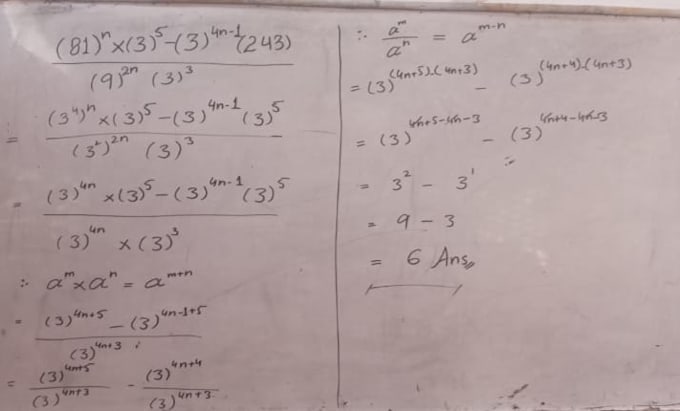 (81)ⁿ×(3)⁵-(3)⁴ⁿ⁻¹(243)
(9)²ⁿ (3)³
= (3⁴)ⁿ×(3)⁵-(3)⁴ⁿ⁻¹(3)⁵
(3²)²ⁿ (3)³
= (3)⁴ⁿ×(3)⁵-(3)⁴ⁿ⁻¹(3)⁵
(3)⁴ⁿ×(3)³
∵ aᵐ×aⁿ = aᵐ⁺ⁿ
= (3)⁴ⁿ⁺⁵-(3)⁴ⁿ⁻¹⁺⁵
(3)⁴ⁿ⁺³
= (3)⁴ⁿ⁺⁵/(3)⁴ⁿ⁺³ - (3)⁴ⁿ⁺⁴/(3)⁴ⁿ⁺³
∵ aᵐ/aⁿ = aᵐ⁻ⁿ
= (3)⁽⁴ⁿ⁺⁵⁾⁻⁽⁴ⁿ⁺³⁾ - (3)⁽⁴ⁿ⁺⁴⁾⁻⁽⁴ⁿ⁺³⁾
= (3)⁴ⁿ⁺⁵⁻⁴ⁿ⁻³ - (3)⁴ⁿ⁺⁴⁻⁴ⁿ⁻³
= 3² - 3¹
= 9 - 3
= 6 Ans